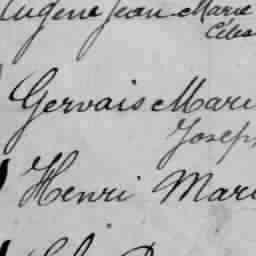 Eugène Jean Marie
Céles
Gervais Mari
Joseph
Henri Mari